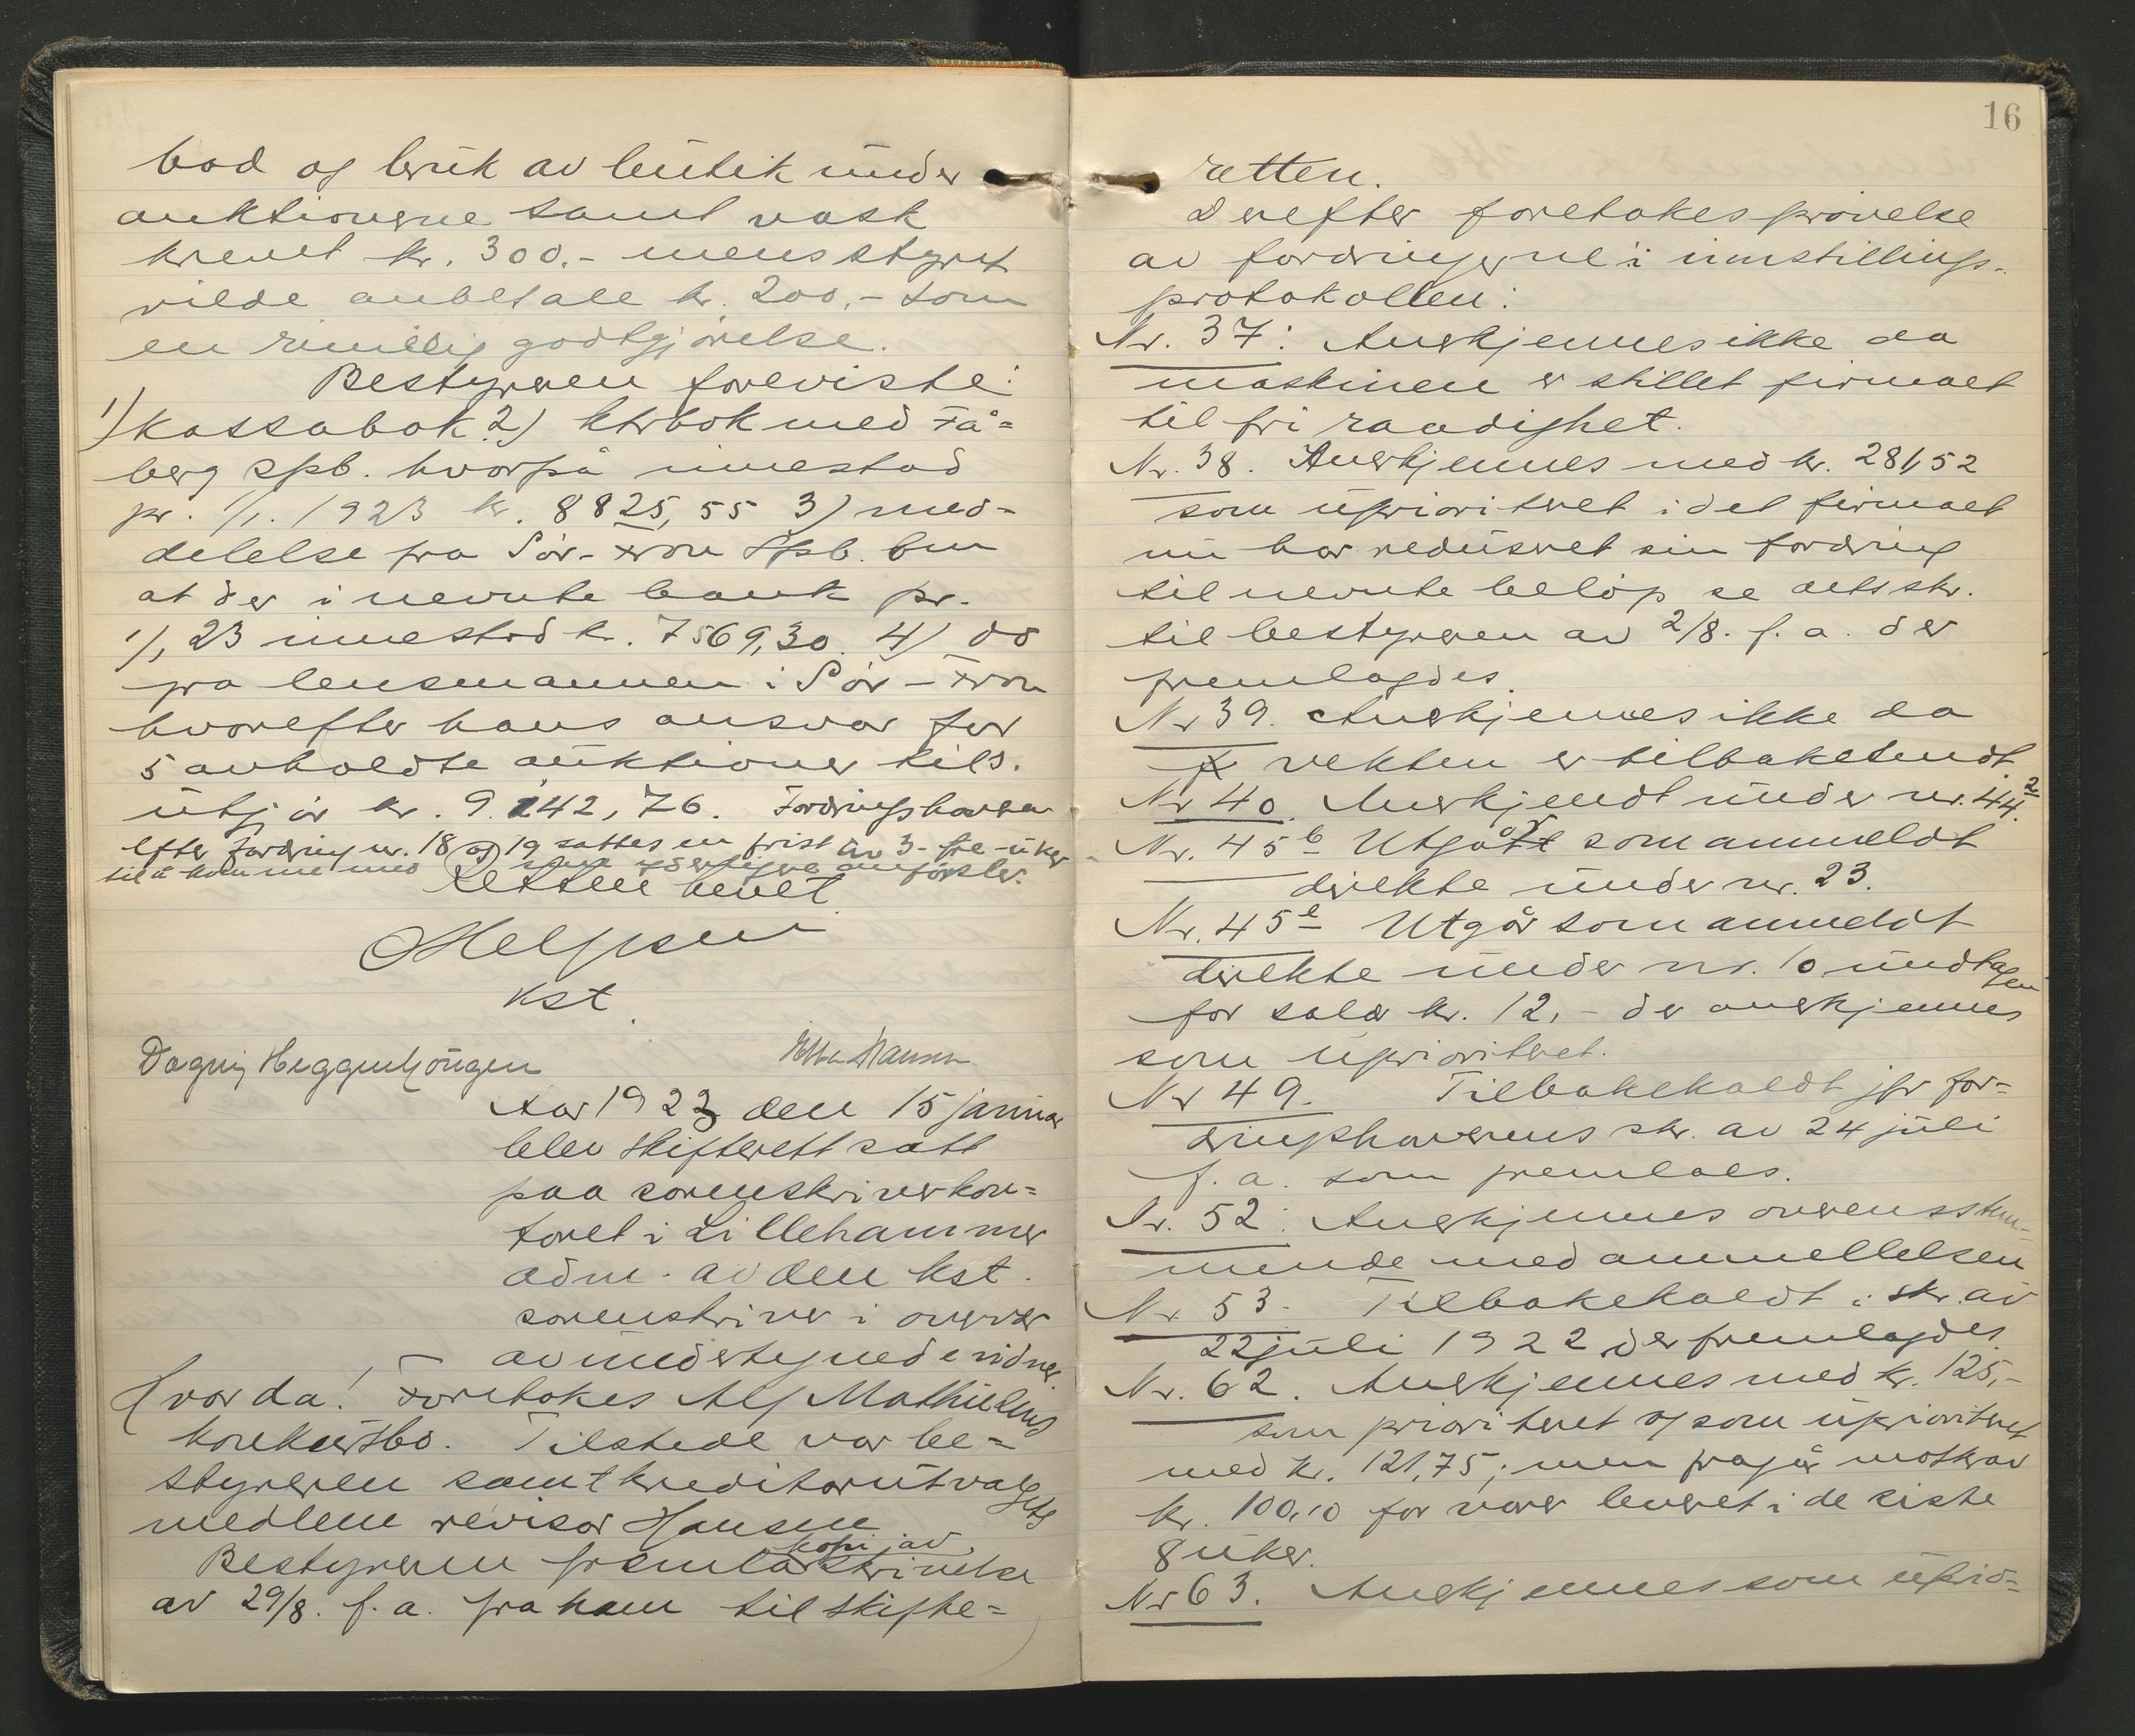 bod og bruk av butik under
auktionerne samt vask
krevet kr. 300,- mens styret
vilde anbefale kr. 200,- som
en rimelig godtgjörelse.
Bestyreren foreviste:
1) Kassabok 2) ktrbok med Få=
berg Spb. hvorpå innestod
pr. 1/1. 1923 kr. 8825,55 3) med-
delelse fra Sör-Fron Spb. om
at der i nevnte bank pr.
1/1 23 innestod kr. 7569,30. 4) do
fra lensmannen i Sör-Fron
hvorefter hans ansvar for
5 avholdte auktioner tils.
utgjör kr. 9.142,76. Fordringshaverne
efter fordring nr. 18 og 19 sattes en frist av 3- tre - uker
til å komme med sine yderligere anförsler.
Retten hevet
kst.
Dagny Heggenhougen
Hansen
Aar 1923 den 15 januar
blev skifterett satt
paa sorenskriverkon=
toret i Lillehammer
adm. av den kst.
sorenskriver i overvær
av undertegnede vidner.
Hvor da! Foretokes Alf Mathiesens
konkursbo. Tilstede var be=
styreren samt kreditorutvalgets
medlem revisor Hansen
Bestyreren fremla kopi av skrivelse
av 29/8. f. a. fra ham til skifte=
16
retten.
Derefter foretokes prövelse
av fordringerne i innstillings-
protokollen:
Nr. 37: Anerkjennes ikke da
maskinen er stillet firmaet
til fri raadighet.
Nr. 38. Anerkjennes med kr. 281,52
som uprioritert idet firmaet
nu har redusert sin fordring
til nevnte belöp se dets skr.
til bestyreren av 2/8. f. a. der
fremlagdes.
Nr 39. Anerkjennes ikke da
vekten er tilbakesendt.
Nr 40. Anerkjendt under nr. 44 2
Nr. 45 b Utgår som anmeldt
direkte under nr. 23.
Nr. 45 e Utgår som anmeldt
direkte under nr. 10 undtagen
for salær kr. 12,- der anerkjennes
som uprioritert.
Nr 49. Tilbakekaldt jfr for=
dringshaverens skr. av 24 juli
f. a. som fremlaes.
Nr. 52: Anerkjennes overensstem-
mende med anmeldelsen
Nr 53. Tilbakekaldt i skr. av
22 juli 1922 der fremlagdes
Nr. 62. Anerkjennes med kr. 125,-
som prioritert og som uprioritert
med kr. 121,75; men fragår motkrav
kr. 100,10 for varer levert i de siste
8 uker.
Nr 63. Anerkjennes som uprio=